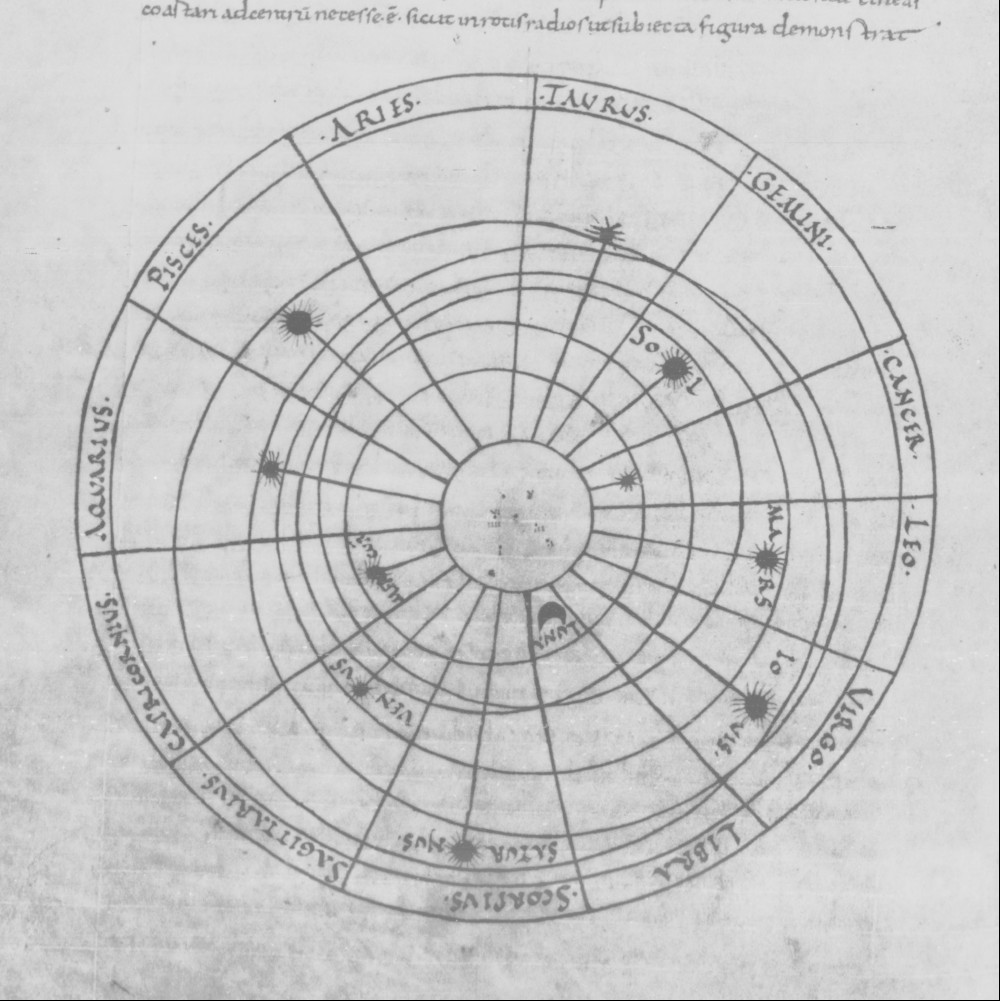 lineas
coartari ad centrū necesse·ē· sicut in rotis radios ut subiecta figura demonstrat
·TAURUS·
·GEMINI·
·CANCER·
·LEO·
VIRGO·
LIBRA
·SCORPIUS·
SAGITTARIUS·
CAPRICORNIUS·
AQVARIVS·
PISCES·
·ARIES·
SOL
MARS
IOVIS·
SATURNUS·
VENUS
LUNA